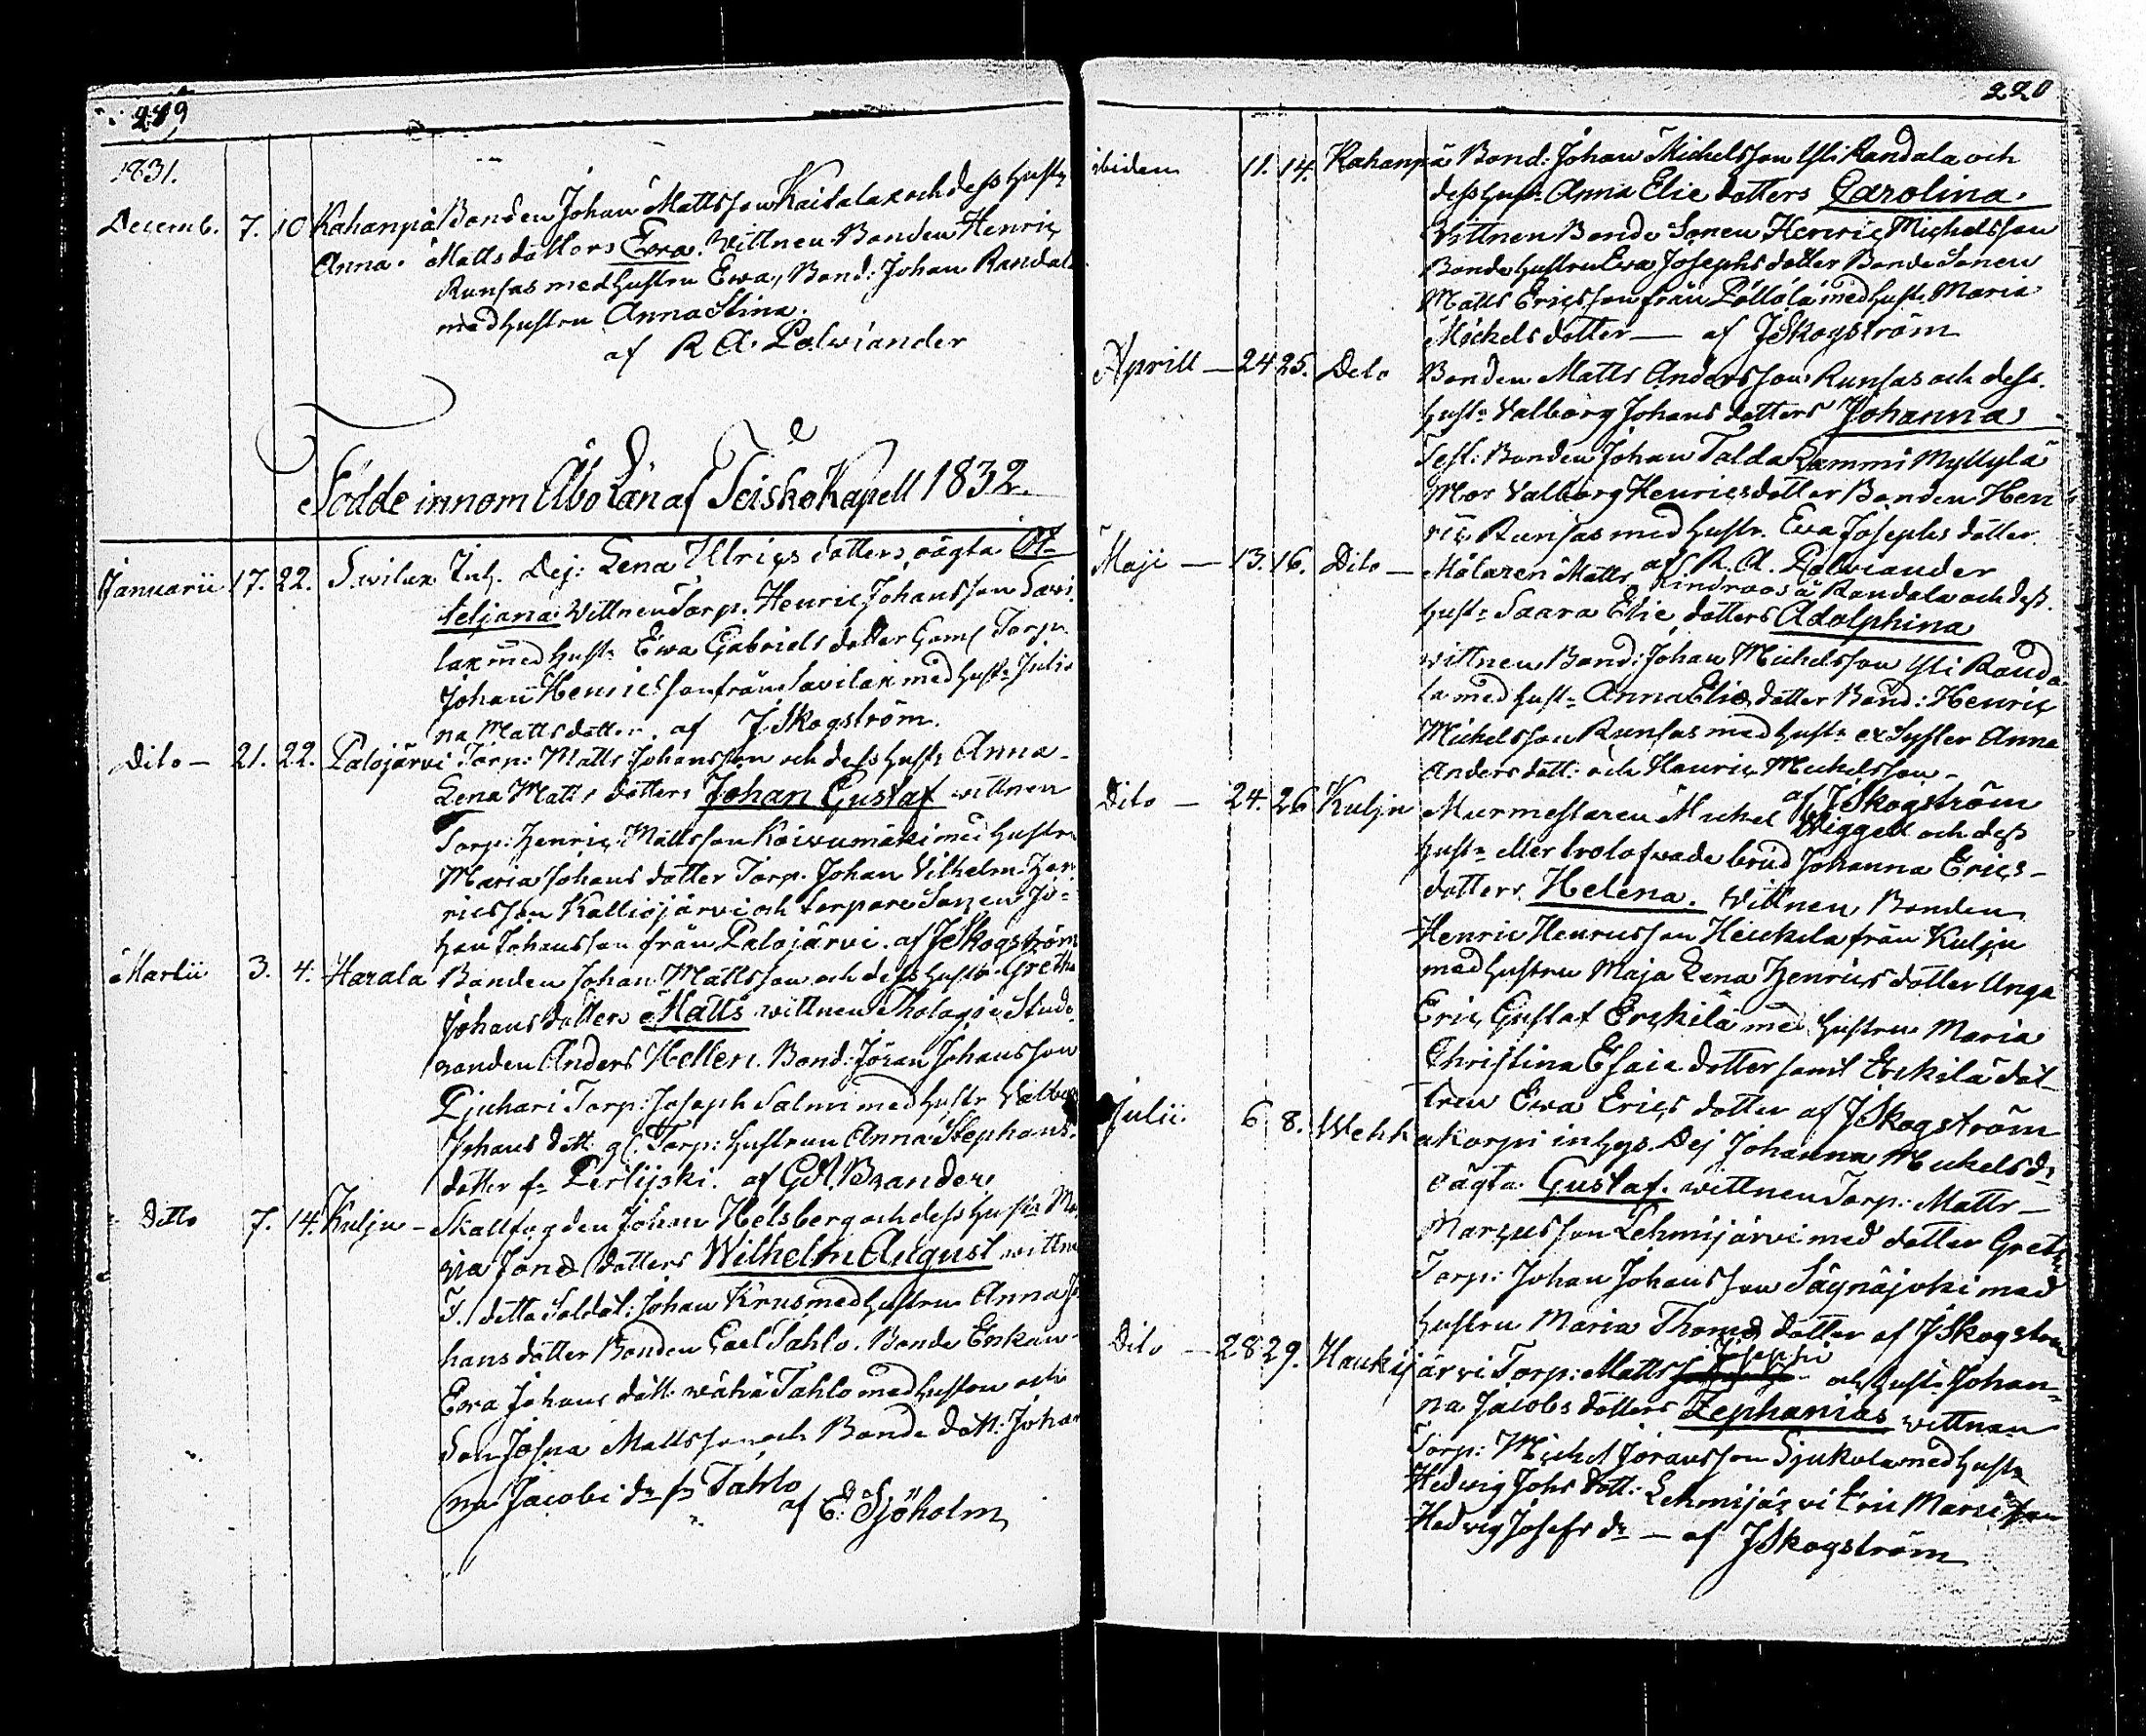 219
1831.
Decemb. 7. 10 Kahanpä Bonden Johan Mattsson Kaitala och dess hustr
Anna Mattsdotters Ewa. Wittnen Bonden Henric
Runsas med hustru Ewa, Bond: Johan Randala
med hustru Anna Stina.
af R A. Palviander
Födde innom Åbo Län af Teisko Kapell 1832.
Januarii 17. 22. Savilax Inh. Dej: Lena Ulrics dotters oägta Ot-
teljana Wittnen Torp. Henric Johansson Savi
lax med hustr Ewa Gabriels dotter Torp.
Johan Henricsson från Savilax med hustr Julia
na Matts dotter. af J Skogström.
Dito — 21. 22. Palojärvi Torp: Matts Johansson och dess hustr Anna
Lena Matts dotters Johan Gustaf wittnen
Torp: Henric Mattsson Koivumäki med hustru
Maria Johans dotter Torp. Johan Vilhelm Hen
ricsson Kalliojärvi och torpare Sonen Jo-
han Johansson från Palojärvi. af J Skogström
Martii 3. 4. Harala Bonden Johan Mattsson och dess hustr Greta
Johans dotters Matts wittnen Thologie Stude
randen Anders Hellen. Bond: Jöran Johansson
Pjuhari Torp: Joseph Salmi med hustr Valborg
Johans dott gl. Torp: hustrun Anna Stephans
dotter fr Perlijski. af G A. Brander
Ditto 7. 14. Kulju — Skallfogden Johan Helsberg och dess hustr Ma
ria Jons dotters Wilhelm August wittne
F. detta Soldat: Johan Krus med hustru Anna Jo
hans dotter Bonden Carl Tahlo. Bonde Enkan
Ewa Johans dott. wähä Tahlo med hustru och
Son Josua Mattsson och Bonde dott: Johan
na Jacobi dr fr Tahlo
af E: Sjöholm
220
ibidem 11. 14. Kahanpä Bond: Johan Michelsson Yli Randala och
dess hustr Anna Elie dotters Carolina.
Wittnen Bonde Sonen Henric Michelsson
Bonde hustrun Ewa Josephs dotter Bonde Sonen
Matts Ericsson från Pöllölä med hustr Maria
Michels dotter — af J Skogström
Aprill — 24 25. Dito Bonden Matts Andersson Runsas och dess
hustr Valborg Johans dotters Johanna
Test: Bonden Johan Talda Lammi Myllylä
Mor Valborg Henrics dotter Bonden Hen
ric Runsas med hustr. Ewa Josephs dotter.
af R. A. Palviander
Maji — 13. 16. Dito — Målaren Matts Lindroos å Randala och dess
hustr Saara Elie dotters Adolphina
wittnen Bond: Johan Michelsson Yli Randa
la med hustr Anna Elie dotter Bond: Henric
Michelsson Runsas med hustr Syster Anna
Anders dott: och Henric Michelsson —
af J Skogström
Dito — 24. 26 Kulju Murmestaren Michel Wiggell och dess
hustr eller trolofwade brud Johanna Erics-
dotters Helena. Wittnen Bonden
Henric Henricsson Heickilä från Kulju
med hustru Maja Lena Henrics dotter Unga
Eric Gustaf Erckilä med hustru Maria
Christina Esaie dotter samt Erckilä dot-
tren Ewa Erics dotter af J Skogström
Julii 6 8. Wehkakorpi inhys. Dej Johanna Michelsdr
oägta Gustaf. wittnen Torp: Matts —
Marcusson Lehmijärvi med dotter Greta
Torp: Johan Johansson Säynäjoki med
hustru Maria Thomæ dotter af J Skogström
Dito — 28 29. Haukijärvi Torp: Matts Josephi och hustr Johan-
na Jacobs dotters Zephanias wittnen
Torp: Michel Jöransson Sjukola med hustr
Hedvig Johs dott: Lehmijärvi Eric Marcisson
Hedvig Josefs dr — af J Skogström